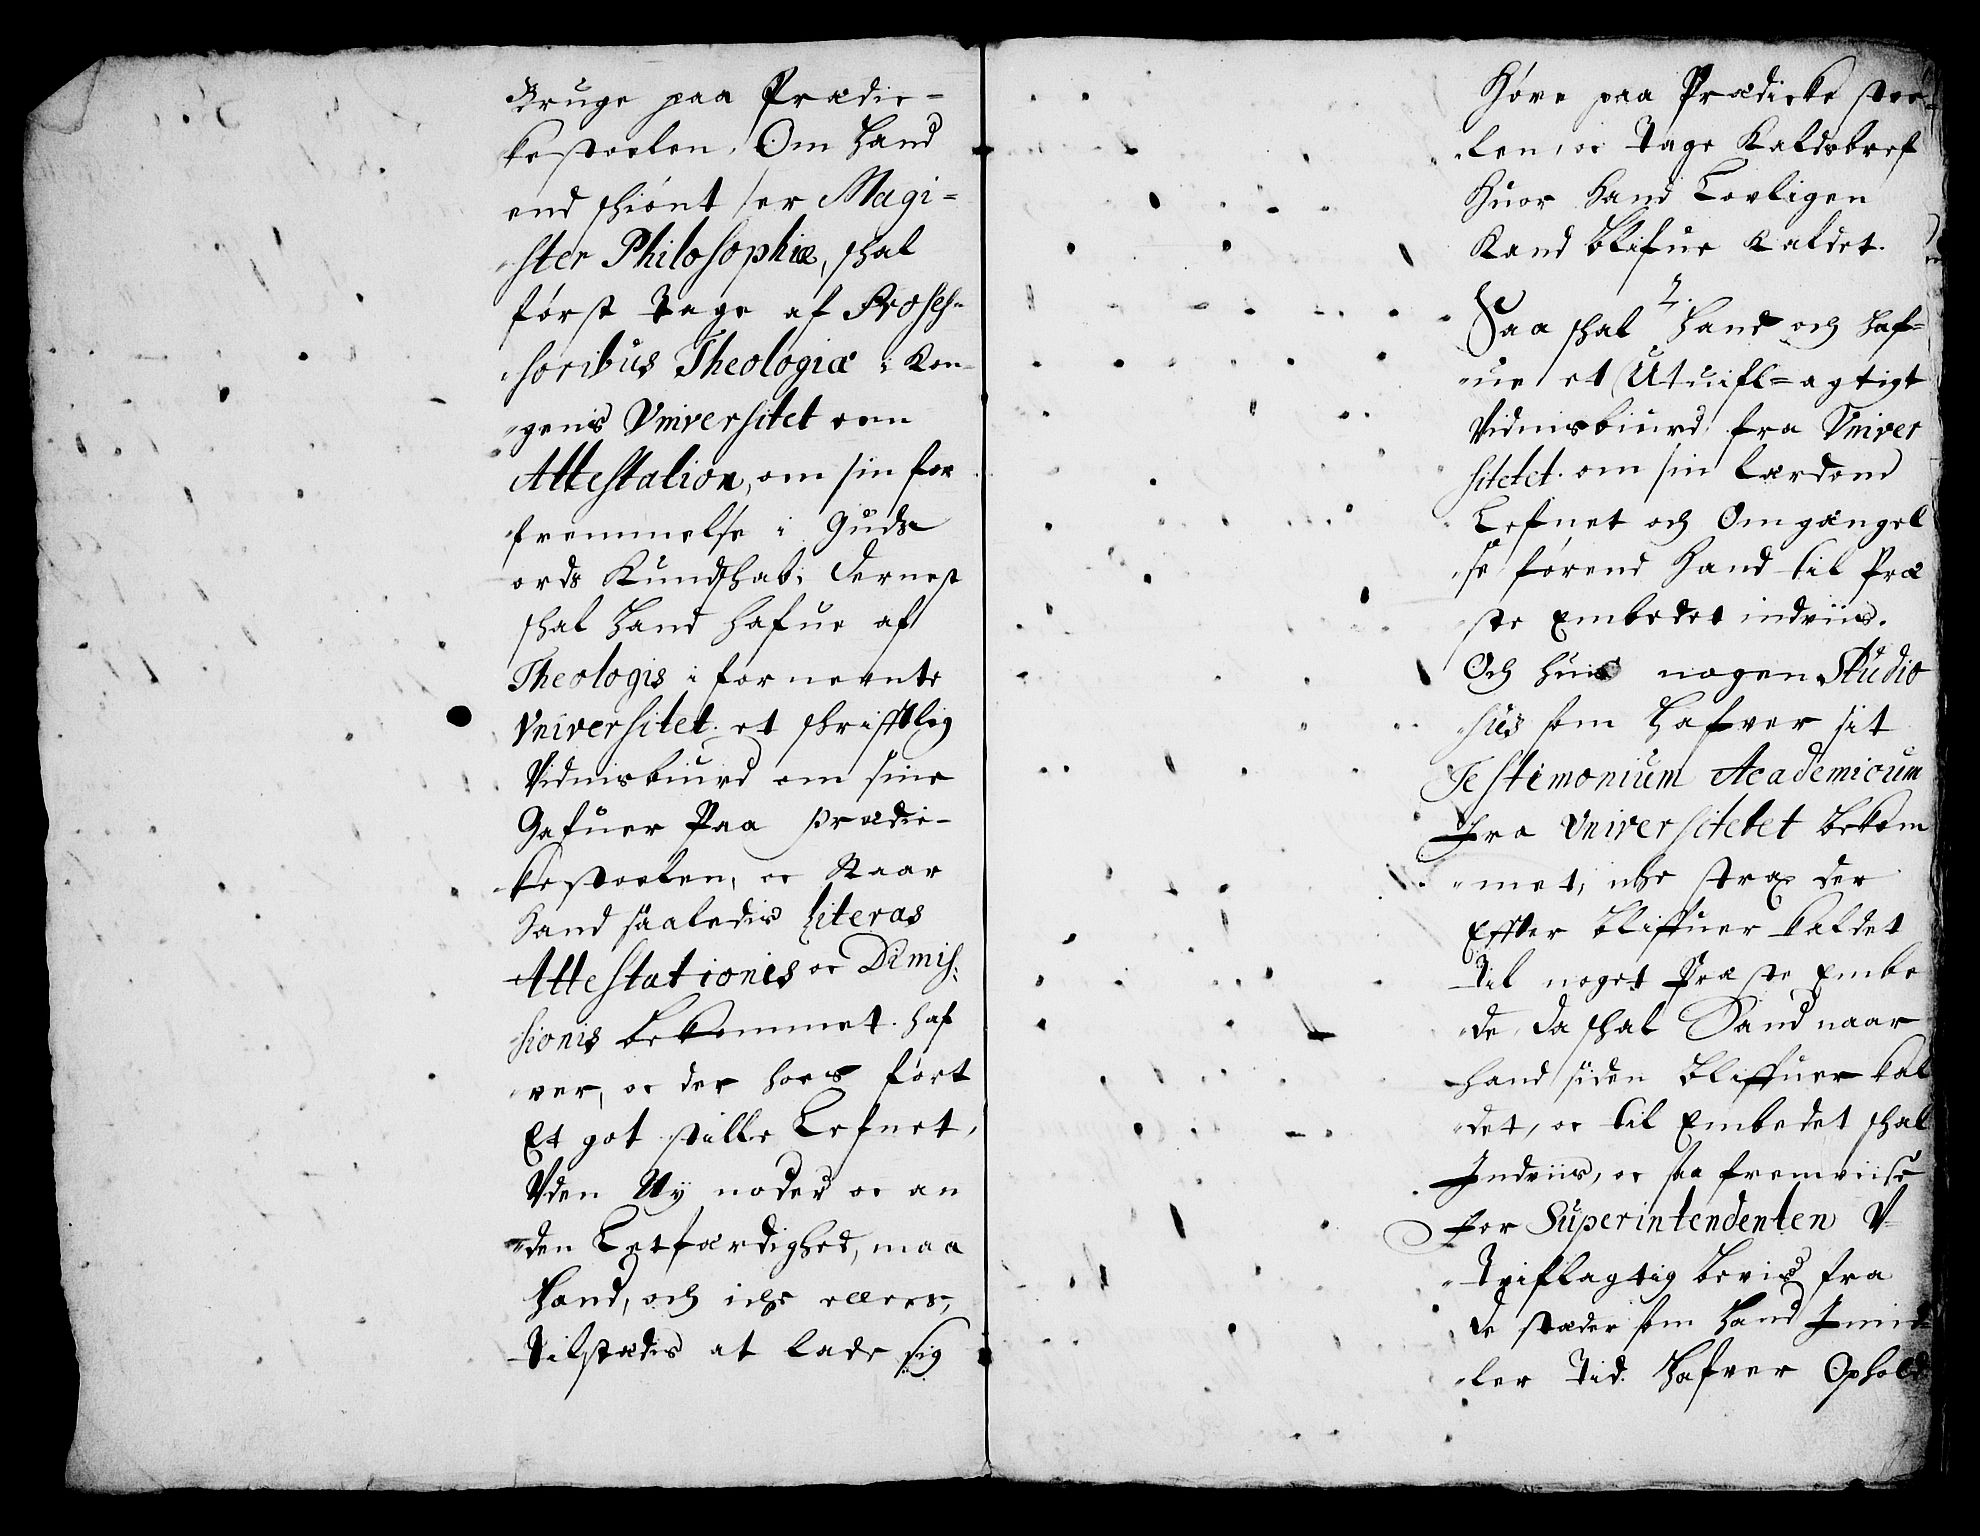 Bruge paa Prædic=
kestoelen, Om hand
end schiönt er Magi=
ster Philosophiæ, schal
først Tage af Profes=
soribus Theologiæ i Kon-
gens Vniversitet een
Attestation, om sin for
fremmelse i Guds
ords Kundschab; Dernest
schal hand hafue af
Theologis i forneente
Vniversitet et schrifftlig
Vidnisbiurd om sine
Gafuer Paa prædic-
kestoelen, oc Naar
hand saaledis Literas
Attestationis oc Dimis:
sionis bekommet haf
ver, oc der hoes ført
Et got stille Lefnet,
Vden Uÿ noder oc an
den Letfærdighed, maa
hand, och iche ellers,
Tilstædis at lade sig
Høre paa Prædicke stoe=
len, oc Tage Kaldsbref
Huor hand Lovligen
Kand blifue kaldet.
2.
Saa schal hand och haf=
ue et Utuifl=agtigt
Vidnisbiurd fra Vniver
sitetet om sin lærdom
Lefnet och Omgængel
se førend hand til Præ
ste Embedet indviis.
Och huis nogen Studio
sus som hafver sit
Testimonium Academicum
Fra Vniversitetet bekom
met, iche strax der
Effter bliffuer kaldet
Til noget Præste Embe
de, da schal hand naar
hand siden bliffuer kal
det, oc til Embedet schal
Indviis, oc saa fremviise
For Superintendenten V-
Tviflagtig bevis fra
de stæder som hand Imid
ler Tid hafver Ophold